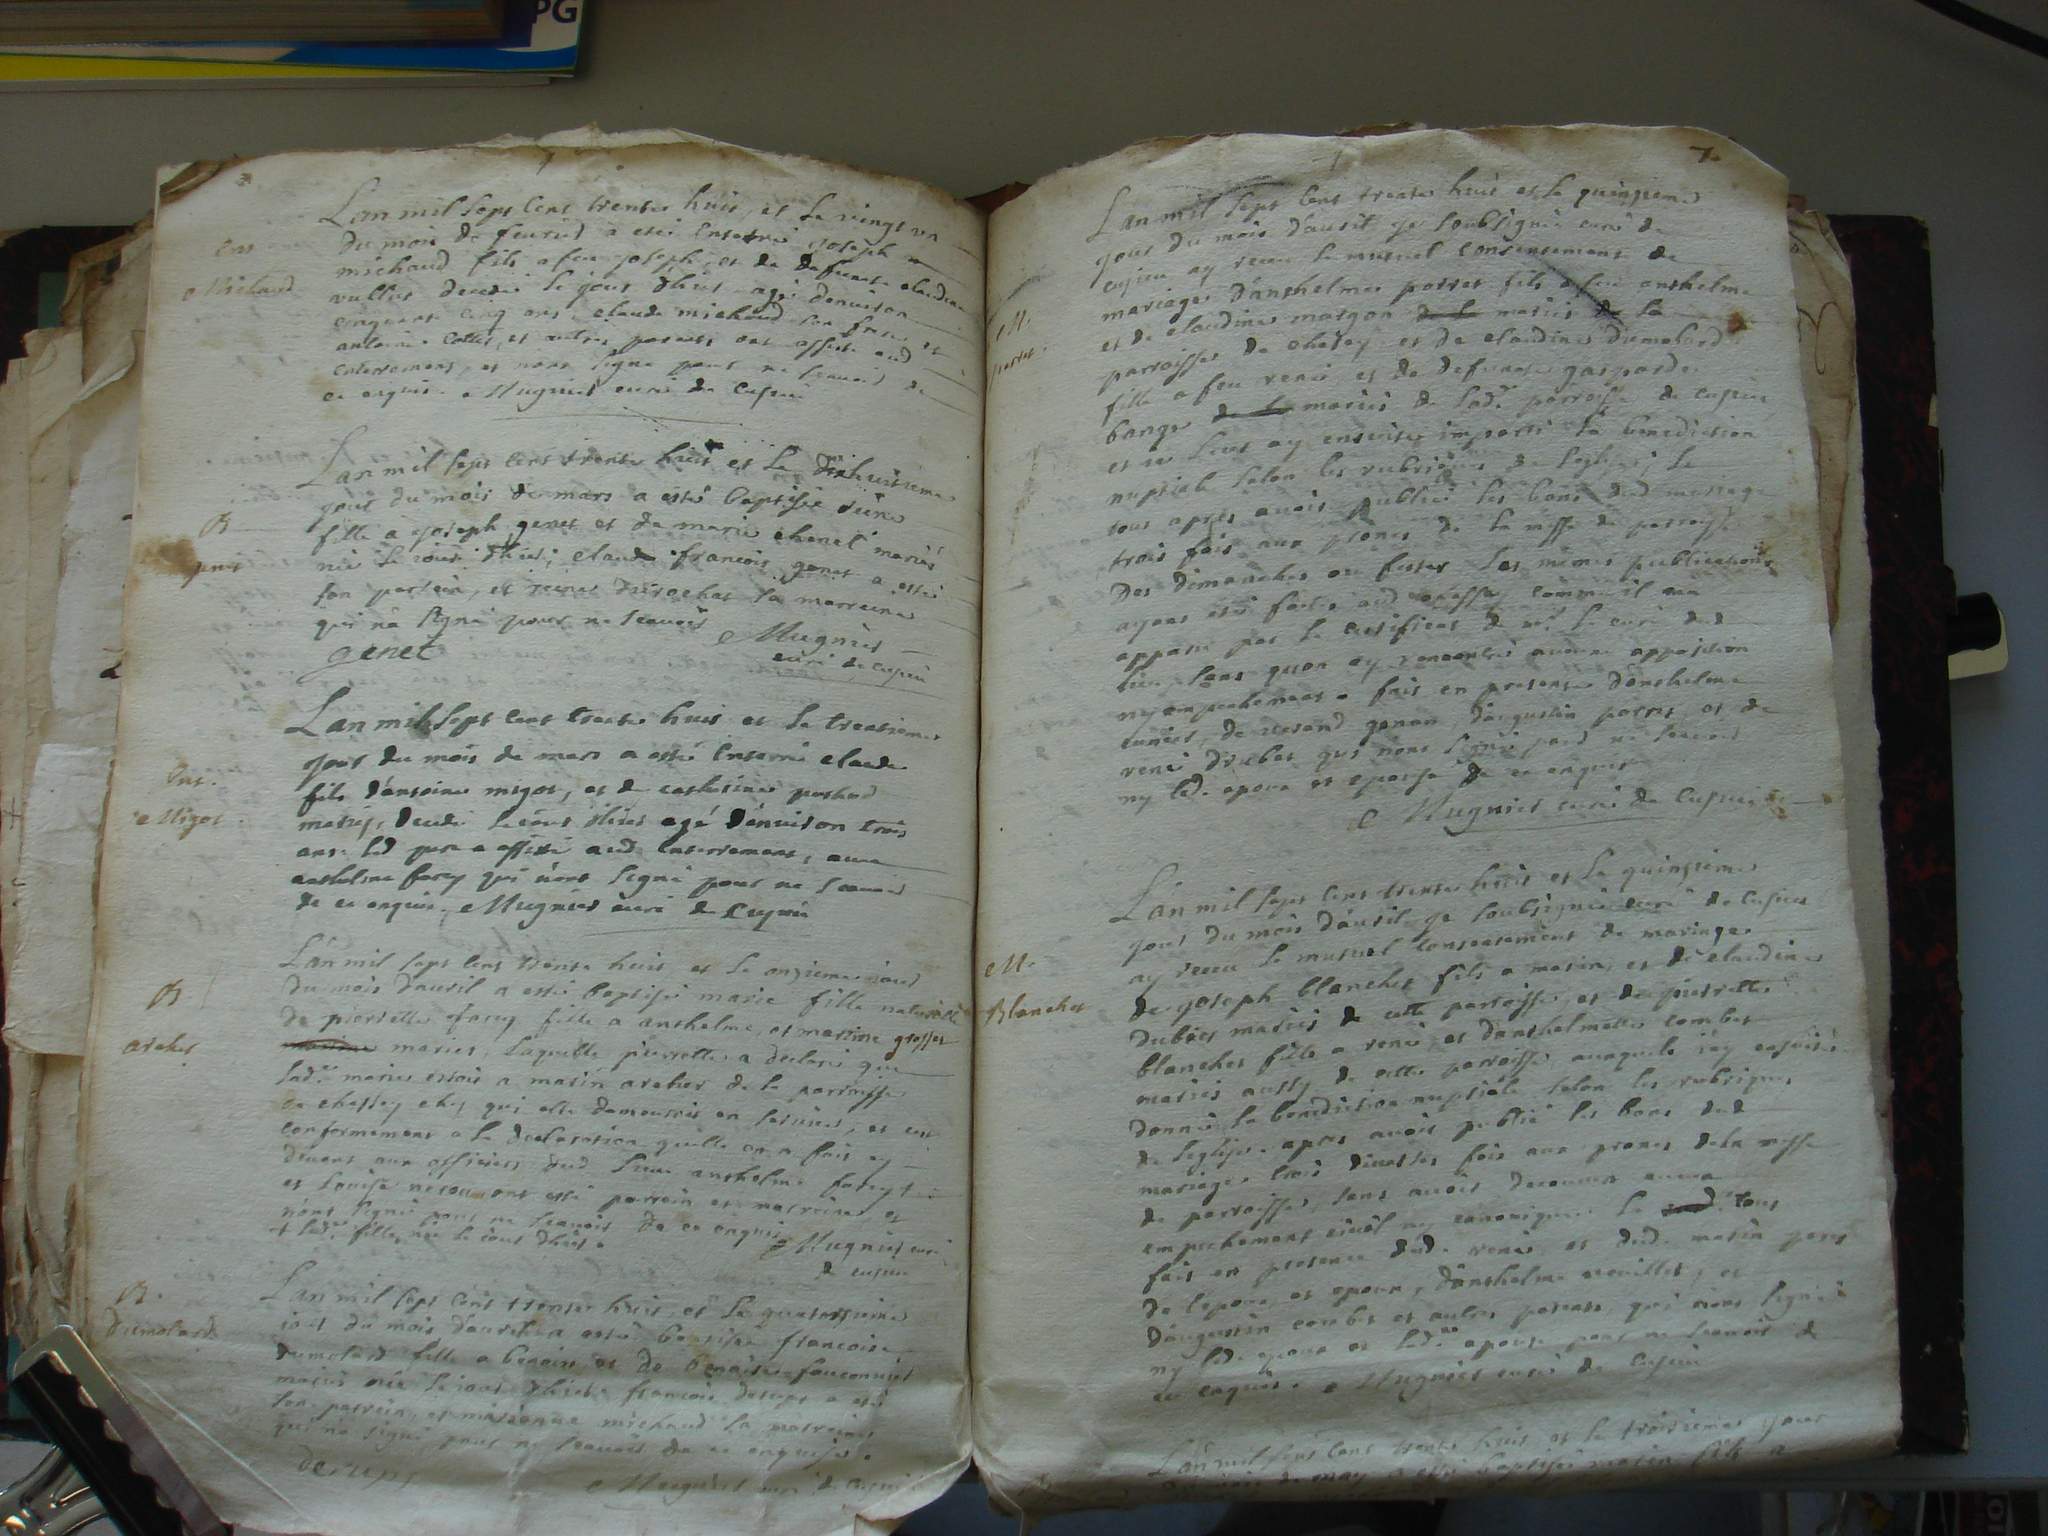 PG
Lan mil sept cent trente huit, et le vingt un
du mois de feurier a esté enterré joseph
michaud fils a feu joseph et de deffunte claudine
vullet decedé le jour d'hier agé denuiron
cinquante cinq ans, claude michaud son frere et
antoine et autres parents ont assisté aud
enterrement, et nont signé pour ne scauoir de
ce enquis. Mugnier curé de Cusieu
ent
Michaud
Lan mil sept cent trente huit et le dixhuitieme
jour du mois de mars a esté baptisée reine
fille a joseph genet et de marie chenel mariés
née le iour d'hier, claude françois genet a esté
son parrein, et reine durochat la marreine
qui na signé pour ne scauoir Mugnier
genet curé de cusieu
B
genet
Lan mil sept cent trente huit et le trentieme
jour du mois de mars a esté enterré claude
fils d'antoine migot, et de catherine
mariés, decedé le iour d'hier agé d'enuiron trois
ans led pere a assisté aud enterrement, auec
anthelme farcy qui n'ont signé pour ne scauoir
de ce enquis. Mugnier curé de Cusieu
Ent.
Migot
L'an mil sept cent trente huit et le onzieme iour
du mois d'auril a esté baptisée marie fille naturelle
de pierrette farcy fille a anthelme, et martine grosset
mariés, laquelle pierrette a declaré que
lad.e marie estoit a marin archer de la parroisse
de chessey chez qui elle demeuroit en seruice, et ce
conformement a la declaration quelle en a fait cy
deuant aux officiers dud lieu anthelme farcy
et louise ont esté parrein et marreine, et
n'ont signé pour ne scauoir de ce enquis Mugnier curé
+ lad.e fille née le iour d'hier. de cusieu
B
archer
Lan mil sept cent trente huit, et le quatorzieme
iour du mois d'auril a esté baptisée francoise
dumolard fille a benoit et de benoite fauconnet
mariés née le iour d'hier francois derups a esté
son parrein, et marianne michaud la marreine
qui na signé pour ne scauoir de ce enquise.
derups Mugnier curé de cusieu
B.
Dumolard
7.
Lan mil sept cent trente huit et le quinzieme
jour du mois d'auril je soubsigné curé de
cusieu ay receu le mutuel consentement de
mariage d'anthelme porret fils a feu anthelme
et de claudine margon mariés de la
parroisse de chesey et de claudine dumolard
fille a feu rené et de defunte gasparde
bange mariés de lad.e parroisse de cusieu,
et ie leur ay ensuite imparti la benediction
nuptiale selon les rubriques de leglise, le
tout apres auoir publié les bans dud mariage
trois fois aux prones de la messe de parroisse
des dimanches ou festes les mêmes publications
ayant esté faites aud chessey comme il ma
apparu par le certificat de mr. le curé dud
lieu sans quon ay rencontré aucune opposition
ny empechement. fait en presence d'anthelme
de genan, d'augustin porret, et de
rené drubet qui n'ont signé pour ne scauoir
ny led. epoux et epouse de ce enquis
Mugnier curé de Cusieu
M.
porret.
L'an mil sept cent trente huit et le quinzieme
jour du mois d'auril je soubsigné curé de Cusieu
ay receu le mutuel consentement de mariage
de joseph blanchet fils a marin, et de claudine
dubiez mariés de cette parroisse, et de pierrette
blanchet fille a rené et d'anthelmette combet
mariés aussy de cette parroisse, auxquels i'ay ensuite
donné la benediction nuptiale selon les rubriques
de leglise, apres auoir publié les bans dud
mariage trois diuerses fois aux prones de la messe
de parroisse, sans auoir decouuert aucun
empechement ciuil ny canonique le tout
fait en presence dud. rené et dud. marin peres
de lepoux et epouse, d'anthelme et
d'augustin combet et autres parents, qui n'ont signé
ny led. epoux et lad.e epouse pour ne scauoir de
ce enquis. Mugnier curé de Cusieu
M.
Blanchet
L'an mil sept cent trente huit et le troisieme jour
du mois de may a esté baptisé marin fils a
B